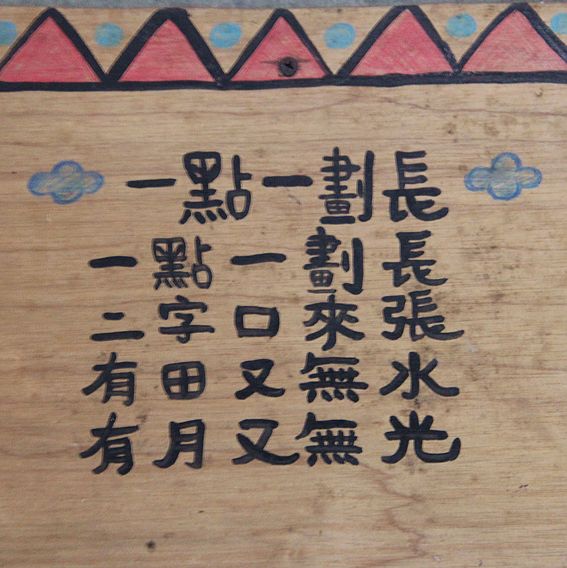 一點一劃長
一點一劃長
二字口來張
有田又無水
有月又無光